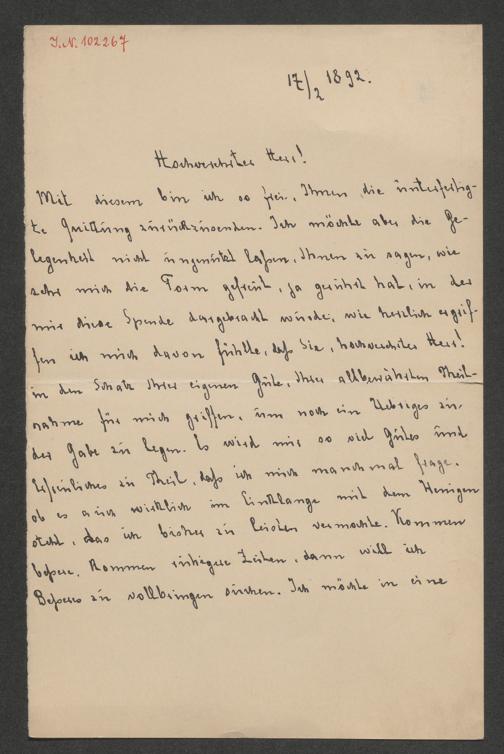 I.N. 102267
17/2 1892.
Hochverehrter Herr!
Mit diesem bin ich so frei, Ihnen die unterfertig-
te Quittung zurückzusenden. Ich möchte aber die Ge-
legenheit nicht ungenützt laßen, Ihnen zu sagen, wie
sehr mich die Form gefreut, ja gerührt hat, in der
mir diese Spende dargebracht wurde, wie herzlich ergrif-
fen ich mich davon fühlte, daß Sie, hochverehrter Herr!
in den Schatz Ihrer eigenen Güte, Ihrer allbewährten Theil-
nahme für mich griffen, um noch ein Uebriges zu
der Gabe zu legen. Es wird mir so viel Gutes und
Erfreuliches zu Theil, daß ich mich manchmal frage,
ob es auch wirklich im Einklange mit dem Wenigen
steht, das ich bisher zu leisten vermochte. Kommen
beßere, kommen ruhigere Zeiten, dann will ich
Beßeres zu vollbringen suchen. Ich möchte in eine